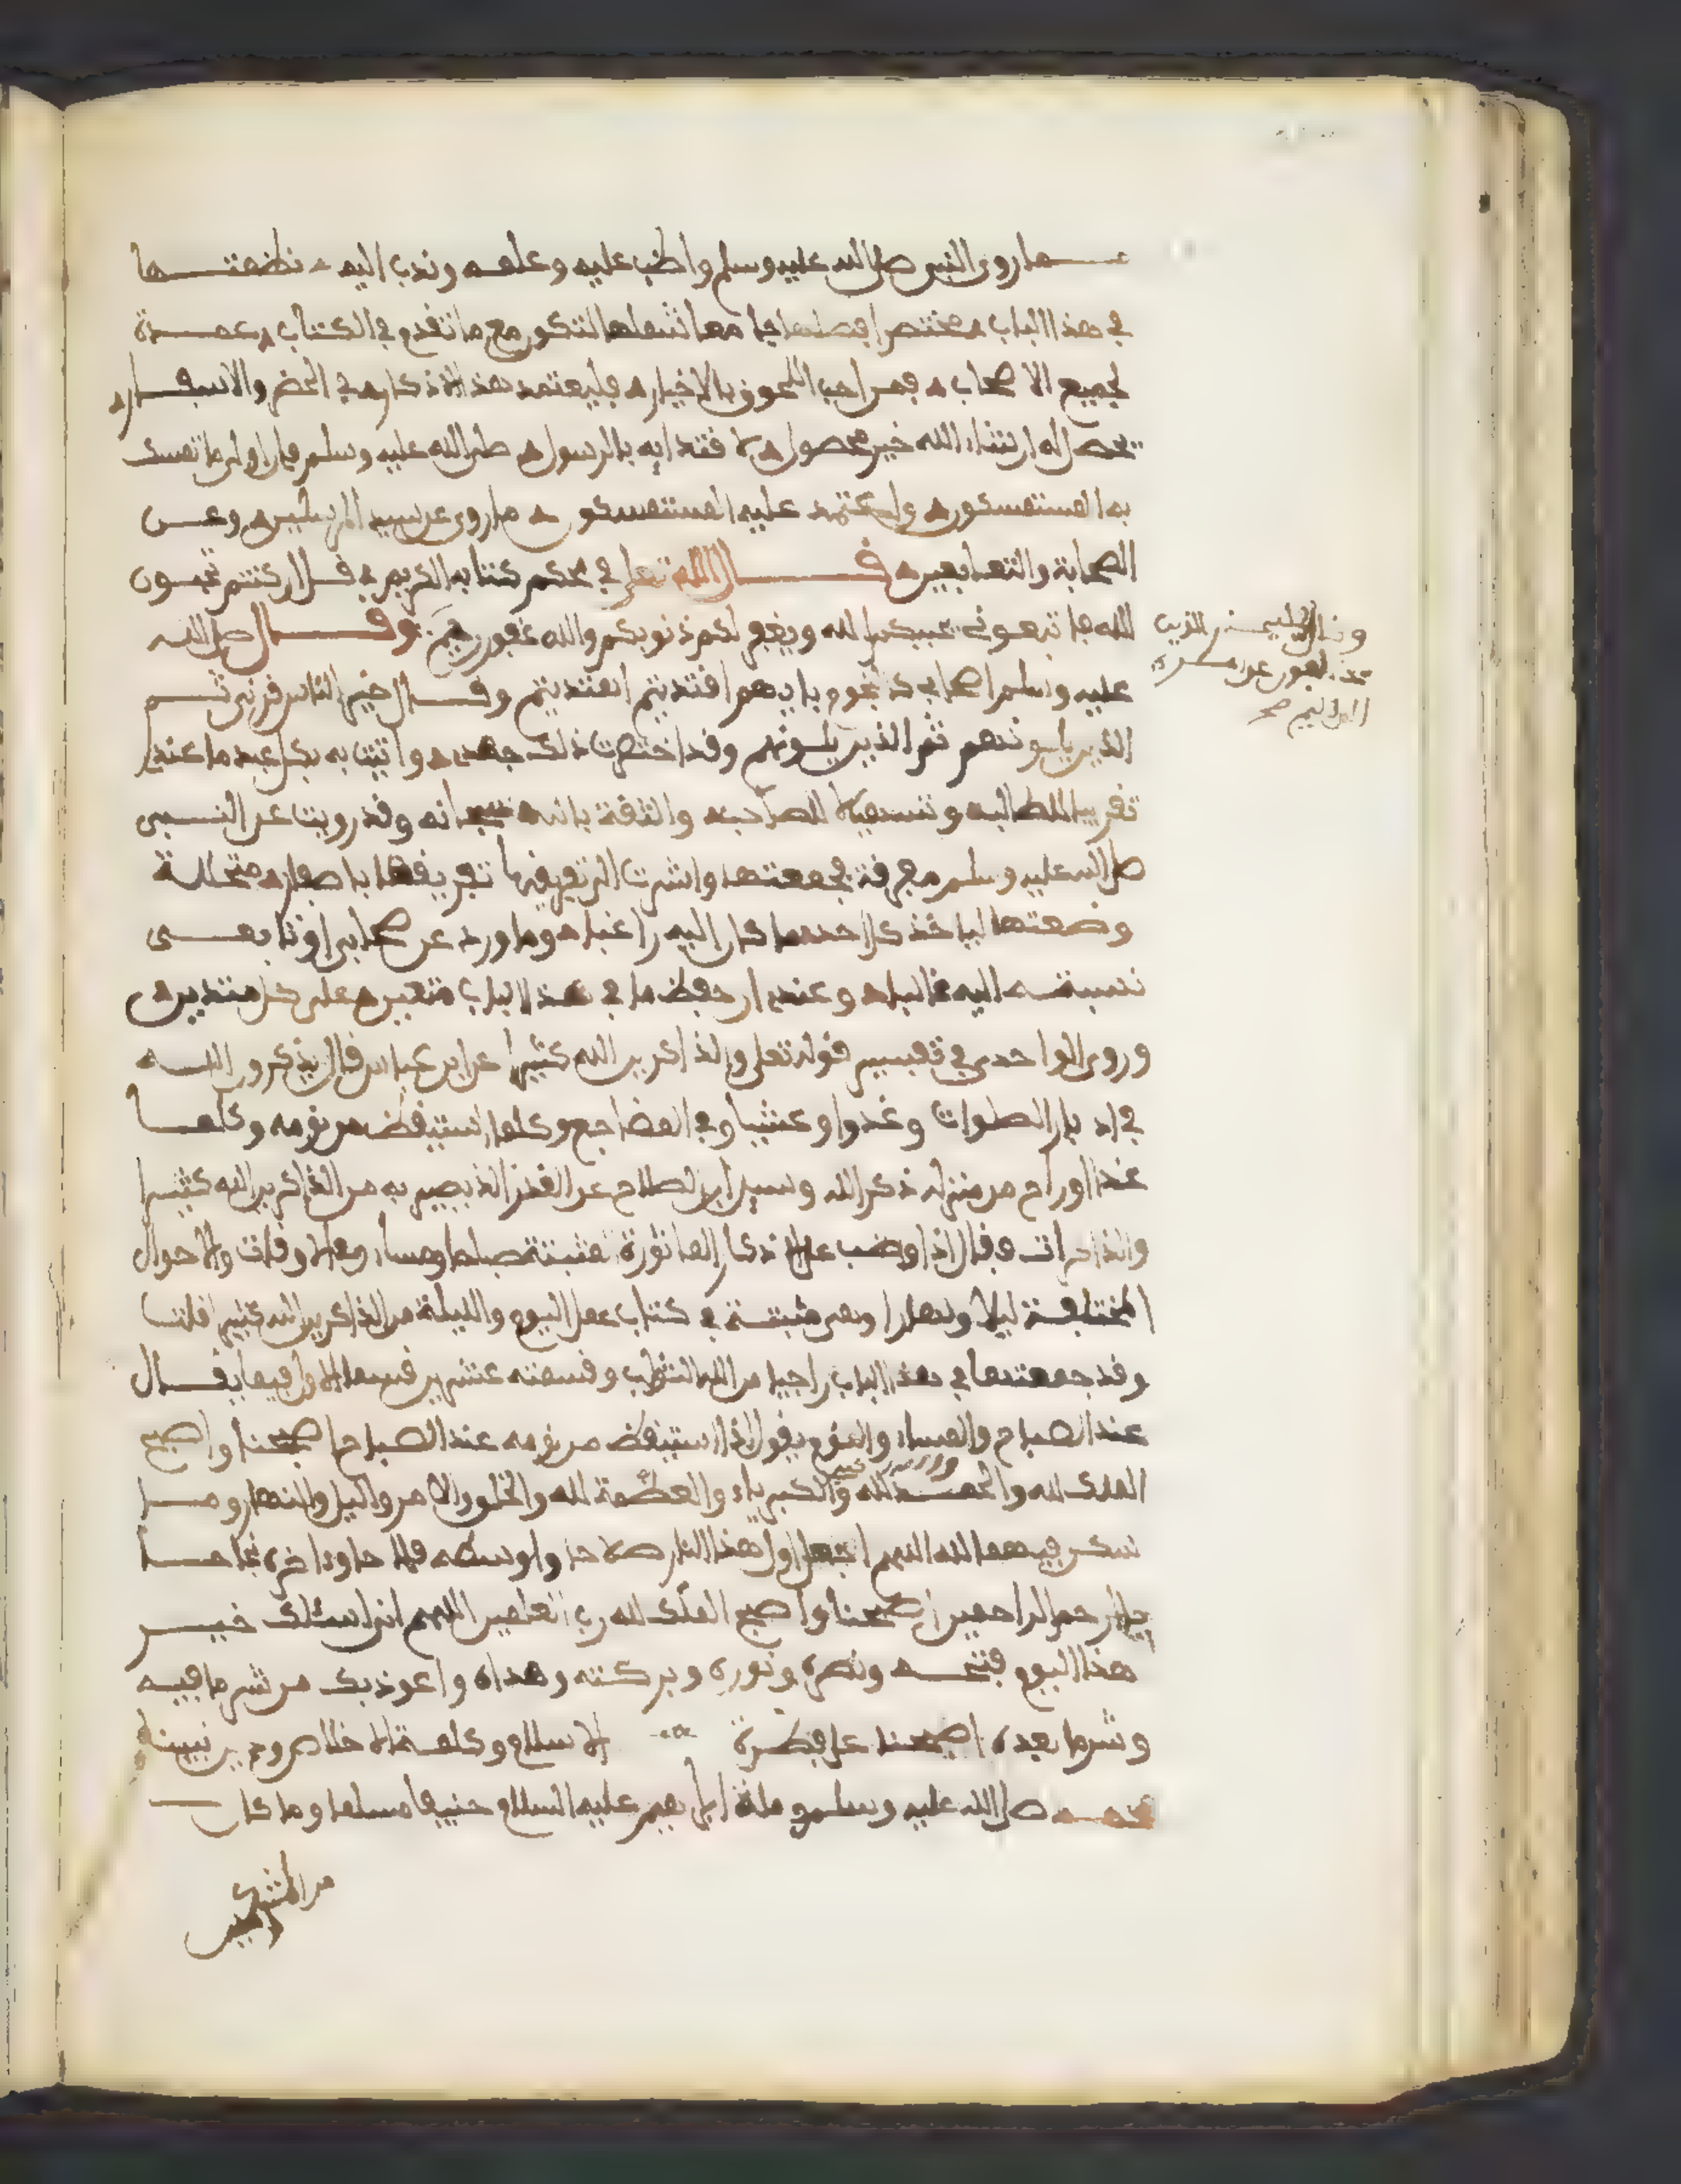 مما روى النبي صلى الله عليه وسلم واظب عليه وعلمه وندب اليه نظمتها
في هذا الباب مختصرا جامعا لتكون مع ما تقدم في الكتاب عمدة
لجميع الاصحاب فمن احب اللحوق بالاخيار فليعتمد هذه الاذكار في الحضر والاسفار
يحصل له ان شاء الله خير محصول لاقتدايه بالرسول صلى الله عليه وسلم فان اولى ما تمسك
به المستمسكون واعتمد عليه المستمسكون ما روي عن سيد المرسلين وعن
الصحابة والتابعين قال الله تعلى في محكم كتابه الكريم قل ان كنتم تحبون
الله فاتبعوني يحببكم الله ويغفر لكم ذنوبكم والله غفور رحيم وقال صلى الله
عليه وسلم اصحابي كالنجوم بايهم اقتديتم اهتديتم وقال خير الناس قرني ثم
الذين يلونهم ثم الذين يلونهم وقد اختصرت ذلك جهدي واتيت به بكل عبد ما عندي
تقريبا لطالبه وتسهيلا لصاحبه والثقة بالله سبحانه وقد رويت عن النبي
صلى الله عليه وسلم مفرقة فجمعتها واشرت الى تعريفها باصفار
وضعتها لياخذ كل احد ما كان اليه راغبا وما ورد عن صحابي او تابعي
نسبته اليه غالبا وعندي ان حفظ ما في هذا الباب متعين على كل متدين
وروى الواحدي في تفسير قوله تعلى والذاكرين الله كثيرا عن ابن عباس قال يذكرون الله
في ادبار الصلوات وغدوا وعشيا وفي المضاجع وكلما استيقظ من نومه وكلما
غدا او راح من منزله ذكر الله وسيل ابن الصلاح عن القدر الذي يصير به من الذاكرين الله كثيرا
والذاكرات فقال اذا وظب على الاذكار الماثورة المثبتة صباحا ومساء وفي الاوقات والاحوال
المختلفة ليلا ونهارا وهي مثبتة في كتاب عمل اليوم والليلة من الذاكرين الله كثيرا قلت
وقد جمعتها في هذا الباب راجيا من الله الثواب وقسمته عشرين قسما الاول فيما يقال
عند الصباح والمساء والنوم يقول اذا استيقظ من نومه عند الصباح اصبحنا واصبح
الملك لله والحمد لله والكبرياء والعظمة لله والخلق والامر واليل والنهار وما
سكن فيهما لله اللهم اجعل اول هذا النهار صلاحا واوسطه فلاحا واخره نجاحا
يا ارحم الراحمين اصبحنا واصبح الملك لله رب العلمين اللهم اني اسئلك خير
هذا اليوم فتحه ونصره ونوره وبركته وهداه واعوذ بك من شر ما فيه
وشر ما بعده اصبحنا على فطرة الاسلام وكلمة الاخلاص ودين نبينا
محمد صلى الله عليه وسلم وملة ابراهيم عليه السلام حنيفا مسلما وما كان
من المشركين